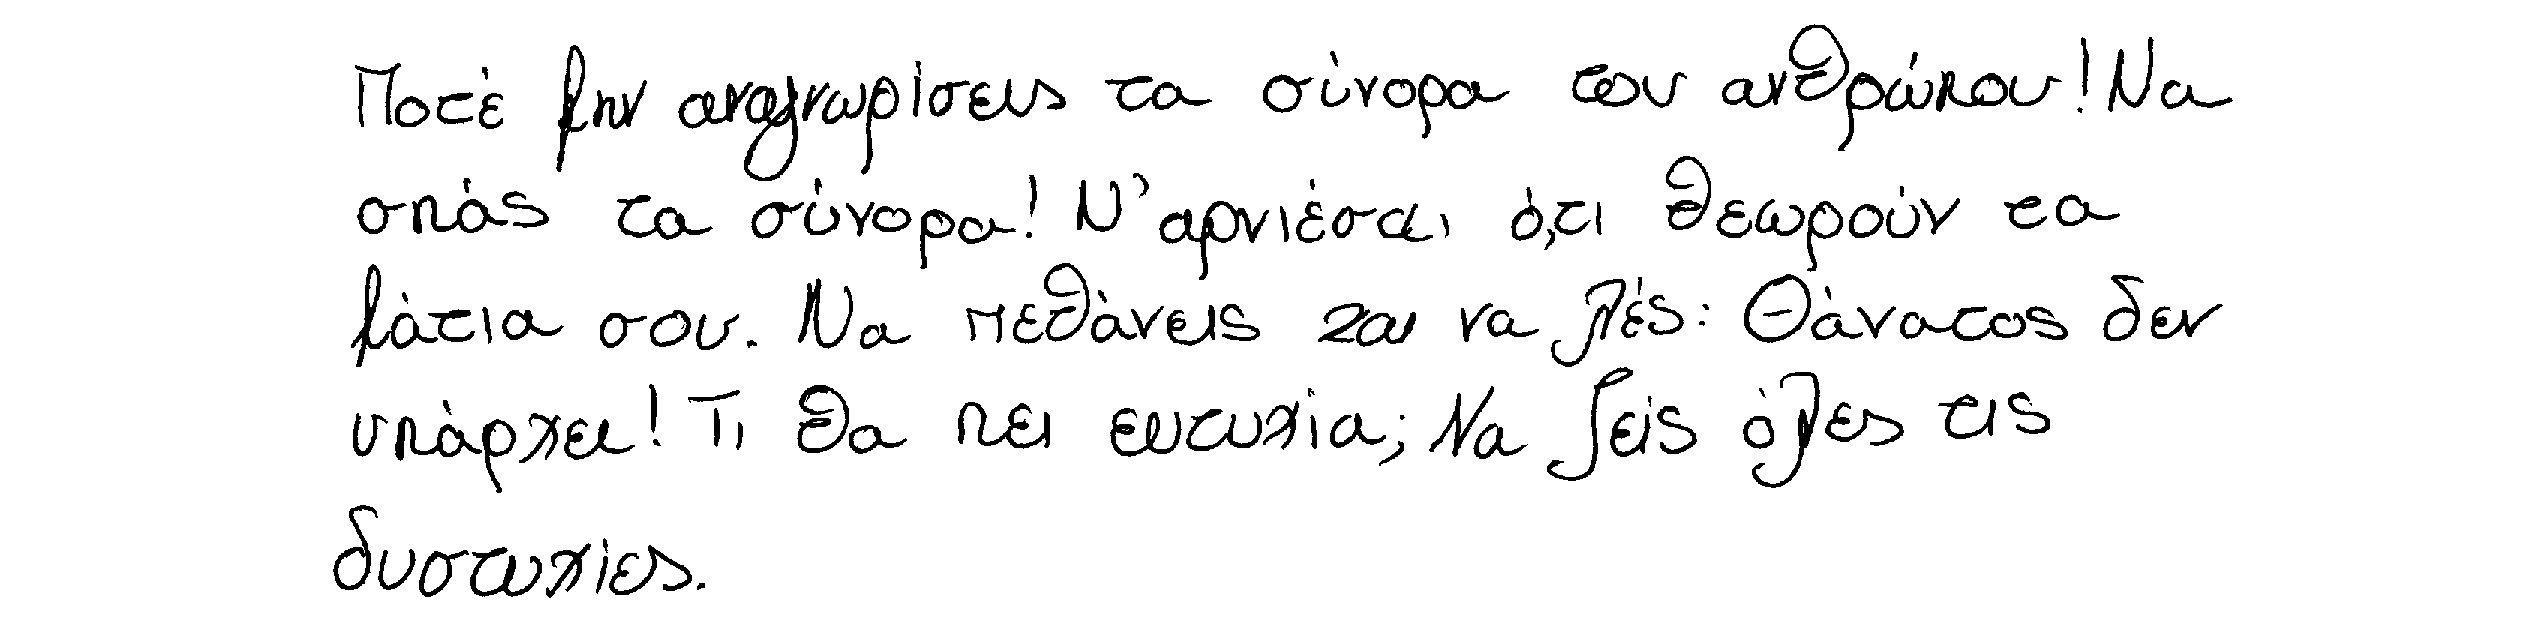 Ποτέ μην αναγνωρίσεις τα σύνορα του ανθρώπου! Να
σπάς τα σύνορα! Ν' αρνιέσαι ό,τι θεωρούν τα
μάτια σου. Να πεθάνεις και να λές: Θάνατος δεν
υπάρχει! Τι θα πει ευτυχία; Να ζείς όλες τις
δυστυχίες.